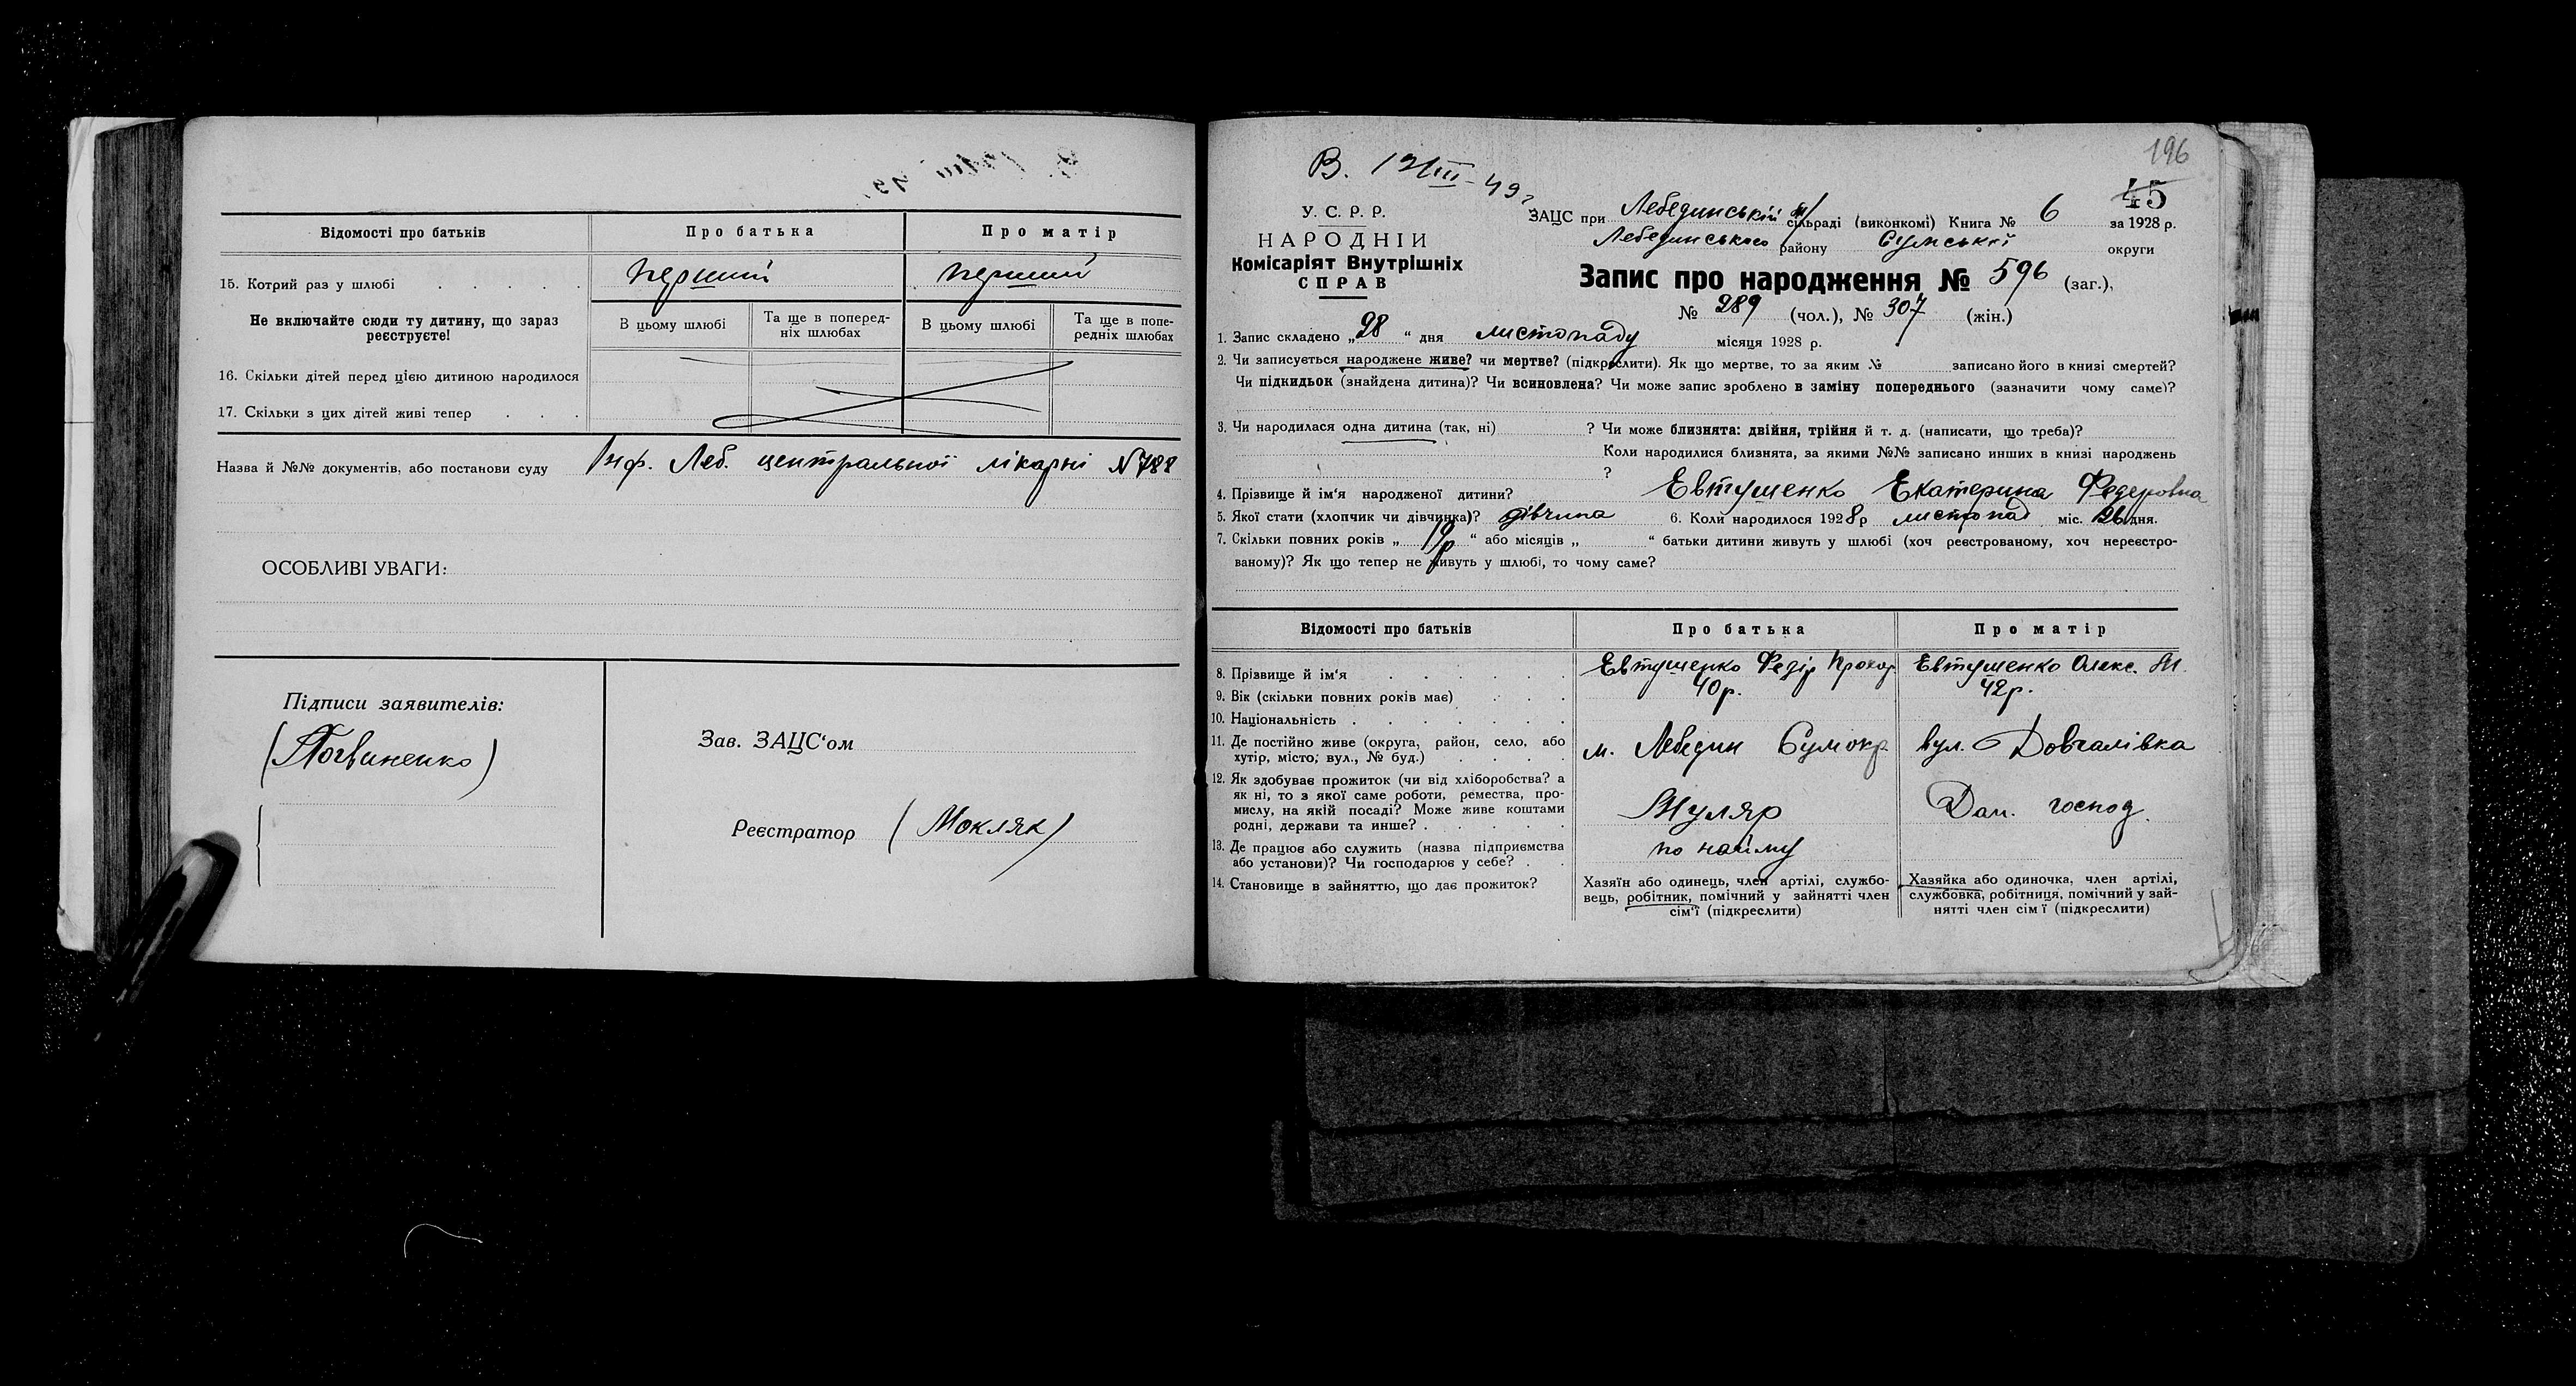 Відомості про батьків
Про батька
Про матір
15. Котрий раз у шлюбі
перший
перший
Не включайте сюди ту дитину, що зараз
реєструєте!
В цьому шлюбі
Та ще в поперед-
ніх шлюбах
В цьому шлюбі
Та ще в попе-
редніх шлюбах
16. Скільки дітей перед цією дитиною народилося
17. Скільки з цих дітей живі тепер
Назва й №№ документів, або постанови суду Інф. Леб. центральної лікарні №788
ОСОБЛИВІ УВАГИ:
Підписи заявителів:
(Логвиненко)
Зав. ЗАЦС‘ом
Реєстратор (Мокляк)
196
45
В. 12/III-49г
У. С. Р. Р.
НАРОДНІЙ
Комісаріят Внутрішніх
СПРАВ
ЗАЦС при Лебединській м/сільраді (виконкомі) Книга № 6 за 1928 р.
Лебединського району Сумської округи
Запис про народження № 596 (заг.),
№ 289 (чол.), № 307 (жін.)
1. Запис складено „28“ дня листопаду місяця 1928 р.
2. Чи записується народжене живе? чи мертве? (підкреслити). Як що мертве, то за яким № записано його в книзі смертей?
Чи підкидьок (знайдена дитина)? Чи всиновлена? Чи може запис зроблено в заміну попереднього (зазначити чому саме)?
3. Чи народилася одна дитина (так, ні) ? Чи може близнята: двійня, трійня й т. д. (написати, що треба)?
Коли народилися близнята, за якими №№ записано инших в книзі народжень
?
4. Прізвище й ім‘я народженої дитини? Евтушенко Екатерина Федеровна
5. Якої стати (хлопчик чи дівчинка)? дівчина 6. Коли народилося 1928р листопад міс. 26 дня.
7. Скільки повних років „ 19р “ або місяців „ “ батьки дитини живуть у шлюбі (хоч реєстрованому, хоч нереєстро-
ваному)? Як що тепер не живуть у шлюбі, то чому саме?
Відомості про батьків
Про батька
Про матір
8. Прізвище й ім‘я
Евтушенко Федір Прохор
Евтушенко Олекс. М.
9. Вік (скільки повних років має)
40р.
42р.
10. Національність
11. Де постійно живе (округа, район, село, або
хутір, місто; вул., № буд.)
м. Лебедин Сумокр
вул. Довгалівка
12. Як здобуває прожиток (чи від хліборобства? а
як ні, то з якої саме роботи, ремества, про-
мислу, на якій посаді? Може живе коштами
родні, держави та инше?
Муляр
Дом. господ.
13. Де працює або служить (назва підприємства
або установи)? Чи господарює у себе?
по найму
14. Становище в зайняттю, що дає прожиток?
Хазяїн або одинець, член артілі, службо-
вець, робітник, помічний у зайнятті член
сім‘ї (підкреслити)
Хазяйка або одиночка, член артілі,
службовка, робітниця, помічний у зай-
нятті член сім‘ї (підкреслити)